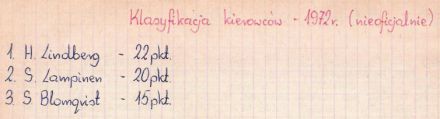 Klasyfikacja kierowców - 1972r. (nieoficjalnie)
1. H. Lindberg - 22pkt.
2. S. Lampinen - 20pkt.
3. S Blomqvist - 15pkt.